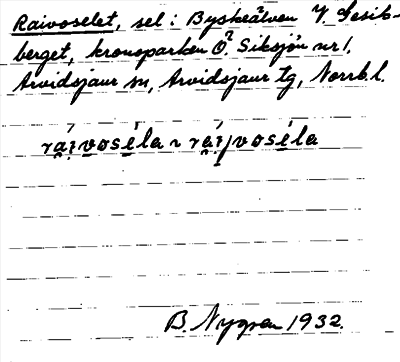 Raivoselet, sel i Byskeälven V. Gesik-
berget, kronoparken Ö. Siksjön nr 1.
Arvidsjaur sn, Arvidsjaur tg, Norrb. l.
B. Nygren 1932.